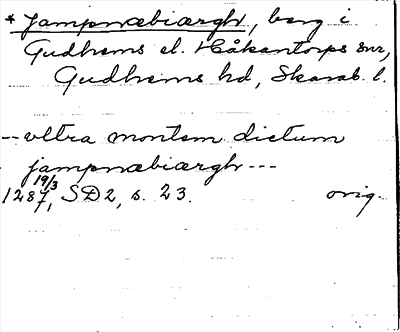 * Jampnæbiærgh, berg i
Gudhems el. Håkantorps snr,
Gudhems hd, Skarab. l.
-- vltra montem dictum
jampnæbiærgh ---
1287 19/3, SD 2, s. 23. orig.